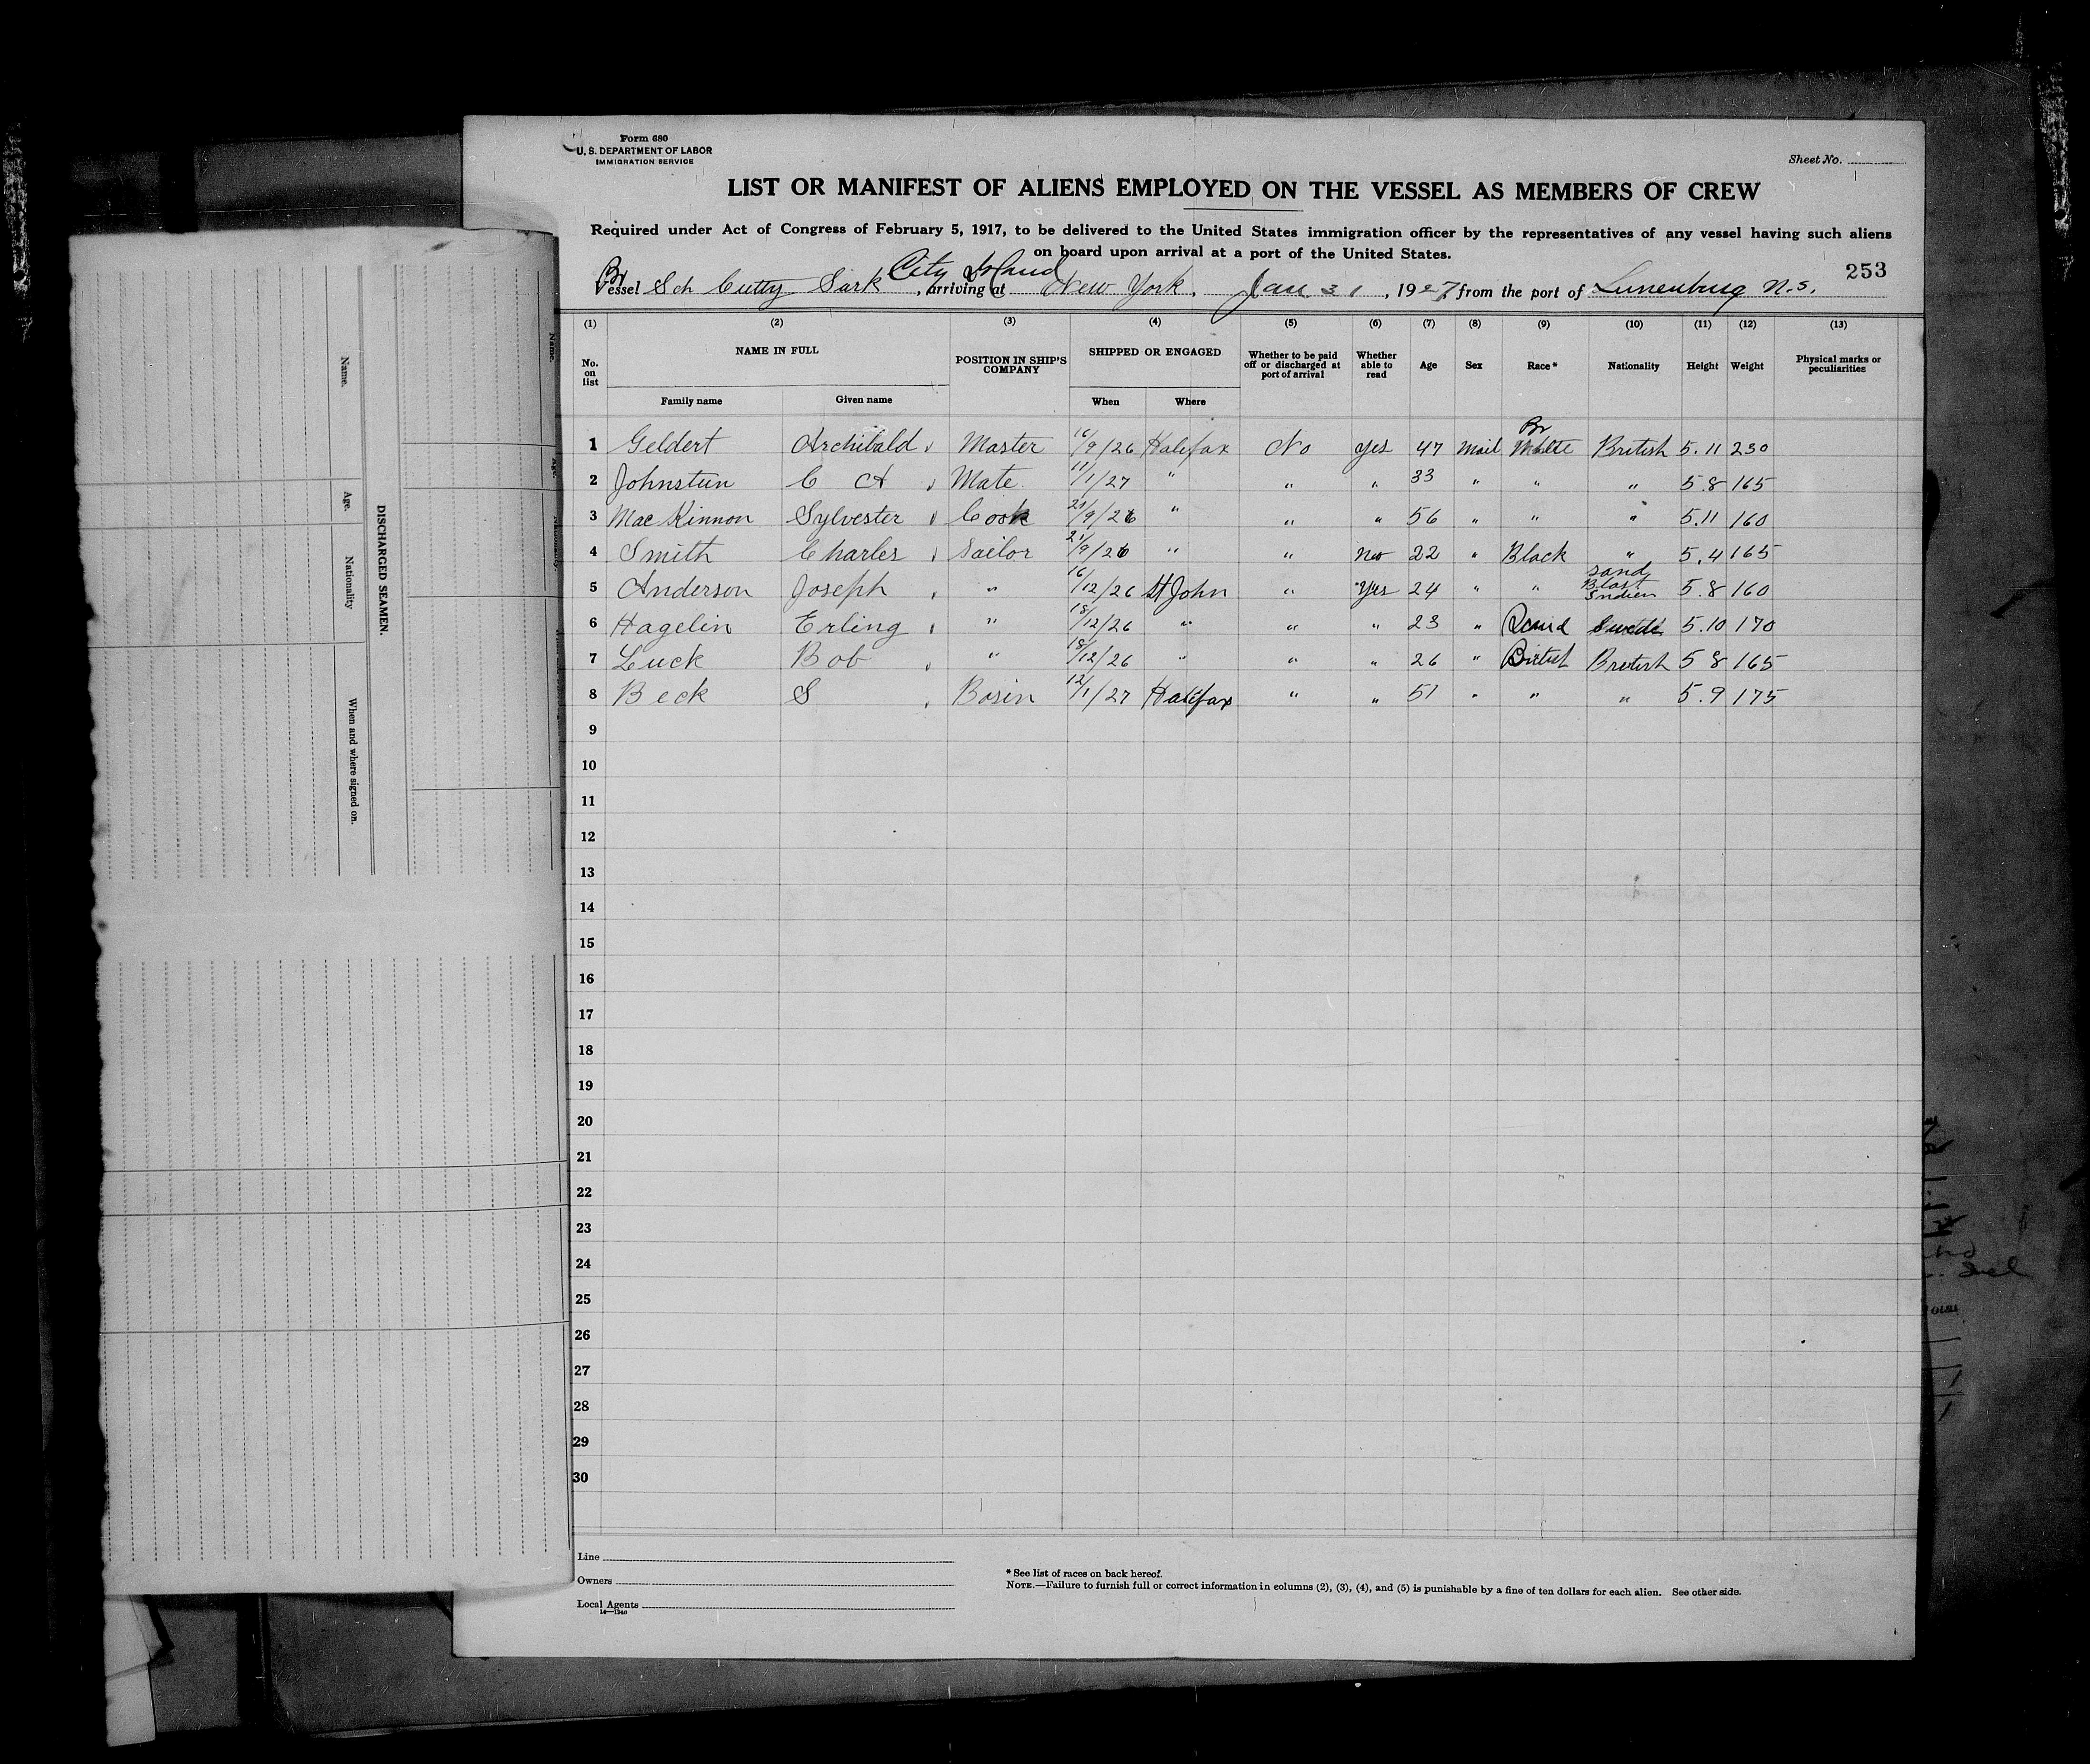 Form 680
U. S. DEPARTMENT OF LABOR
IMMIGRATION SERVICE
Sheet No.
LIST OR MANIFEST OF ALIENS EMPLOYED ON THE VESSEL AS MEMBERS OF CREW
Required under Act of Congress of February 5, 1917, to be delivered to the United States immigration officer by the representatives of any vessel having such aliens
on board upon arrival at a port of the United States.
253
Br City Island
Vessel Sch Cutty Sark, arriving at New York, Jan 31, 1927 from the port of Lunenburg N.S.
(1) (2) (3) (4) (5) (6) (7) (8) (9) (10) (11) (12) (13)
No. on list NAME IN FULL POSITION IN SHIP'S COMPANY SHIPPED OR ENGAGED Whether to be paid off or discharged at port of arrival Whether able to read Age Sex Race* Nationality Height Weight Physical marks or peculiarities
Family name Given name When Where
Br
1 Geldert Archibald Master 16/9/26 Halifax No yes 47 Mail White British 5.11 230
2 Johnstun C A Mate 11/1/27 " " " 33 " " " 5.8 165
3 MacKinnon Sylvester Cook 21/9/26 " " " 56 " " " 5.11 160
4 Smith Charles Sailor 21/9/26 " " No 22 " Black " 5.4 165
5 Anderson Joseph " 16/12/26 St John " Yes 24 " " Indien 5.8 160
6 Hagelin Erling " 18/12/26 " " " 23 " Swede 5.10 170
7 Luck Bob " 18/12/26 " " " 26 " British British 5 8 165
8 Beck S Bosin 12/1/27 Halifax " " 51 " " " 5.9 175
9
10
11
12
13
14
15
16
17
18
19
20
21
22
23
24
25
26
27
28
29
30
Line
Owners
Local Agents
14—1240
* See list of races on back hereof.
NOTE.—Failure to furnish full or correct information in columns (2), (3), (4), and (5) is punishable by a fine of ten dollars for each alien. See other side.
DISCHARGED SEAMEN.
Name. Age. Nationality When and where signed on.
Name.